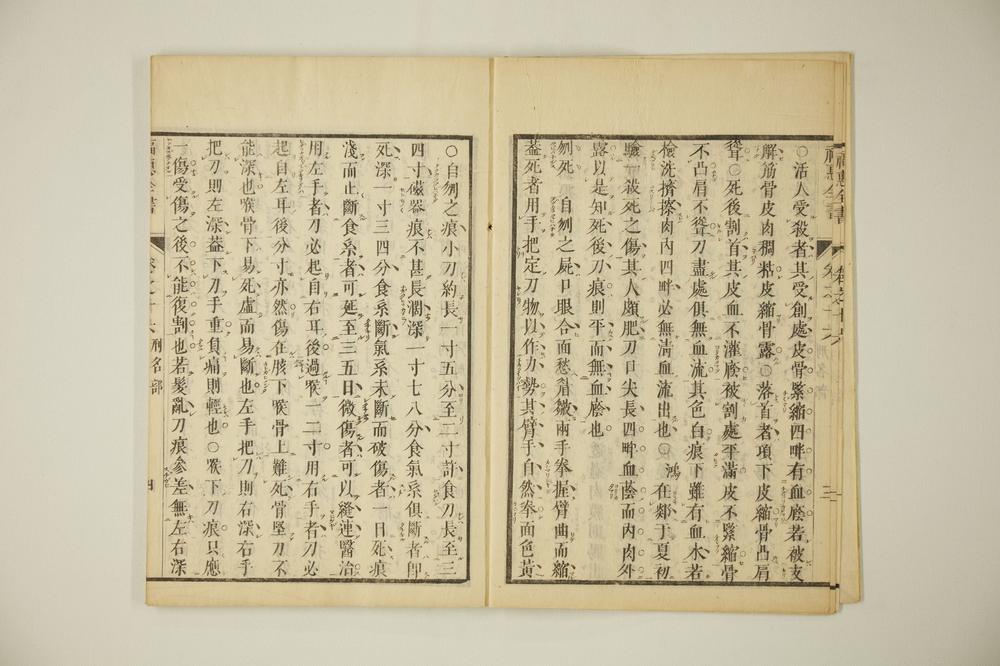 ○活人受殺者其受創處皮骨緊縮四畔有血廕若被支
解筋骨皮肉稠粘皮縮骨露○落首者項下皮縮骨凸肩
聳○死後割首其皮血不灌廕被割處平滿皮不緊縮骨
不凸肩不聳刀盡處俱無血流其色白痕下雖有血水若
檢洗擠捺肉內四畔必無清血流出也○鴻在鄰于夏初
驗一殺死之傷其人頗肥刀口尖長四畔血蔭而內肉外
露以是知死後刀痕則平而無血廕也
刎死 自刎之屍口眼合而愁眉皺兩手拳握臂曲而縮
葢死者用手把定刀物以作力勢其臂手自然拳面色黃
福惠全書 卷之十六 三
○自刎之痕小刀約長一寸五分至二寸許食刀長至三
四寸磁器痕不甚長濶深一寸七八分食氣系俱斷者卽
死深一寸三四分食系斷氣系未斷而破傷者一日死痕
淺而止斷食系者可延至三五日微傷者可以縫連醫治
用左手者刀必起自右耳後過喉一二寸用右手者刀必
起自左耳後分寸亦然傷在胲下喉骨上難死骨堅刀不
能深也喉骨下易死虛而易斷也左手把刀則右深右手
把刀則左深葢下刀手重負痛則輕也○喉下刀痕只應
一傷受傷之後不能復割也若髮亂刀痕參差無左右深
福惠全書 卷之十六 刑名部 四